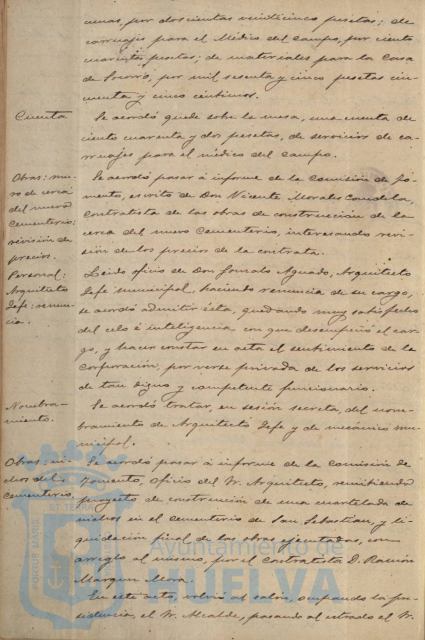 cenas, por doscientas veinticinco pesetas; de
carruajes para el Médico del Campo, por ciento
cuarenta pesetas; de materiales para la Casa
de Socorro, por mil sesenta y cinco pesetas cin-
cuenta y cinco céntimos.
Cuenta
Se acordó quede sobre la mesa, una cuenta de
ciento cuarenta y dos pesetas, de servicios de ca-
rruajes para el médico del campo.
Obras: mu-
ro de cerca
del nuevo
Cementerio:
revisión de
precios.
Se acordó pasar á informe de la Comisión de Fo-
mento, escrito de Don Vicente Morales
Contratista de las obras de construcción de la
cerca del nuevo Cementerio, interesando revi-
sión de los precios de la contrata.
Personal:
Arquitecto
Jefe: renun-
cia.
Leído oficio de Don Gonzalo Aguado, Arquitecto
Jefe municipal, haciendo renuncia de su cargo,
se acordó admitir ésta, quedando muy satisfechos
del celo é inteligencia con que desempeñó el car-
go, y hacer constar en acta el sentimiento de la
Corporación, por verse privada de los servicios
de tan digno y competente funcionario.
Nombra-
miento.
Se acordó tratar, en sesión secreta, del nom-
bramiento de Arquitecto Jefe y de mecánico mu-
nicipal.
Obras: ni-
chos del
Cementerio.
Se acordó pasar á informe de la Comisión de
Fomento, oficio del Sr. Arquitecto, remitiendo
proyecto de construcción de una cuartelada de
nichos en el cementerio de San Sebastian, y li-
quidación final de las obras ejecutadas, con
arreglo al mismo, por el Contratista D. Ramón
Marquez Mora.
En este acto, volvió al salón, ocupando la pre-
sidencia, el Sr. Alcalde, pasando al estrado el Sr.
PORTUS MARIS
ET TERRÆ
Ayuntamiento de
HUELVA